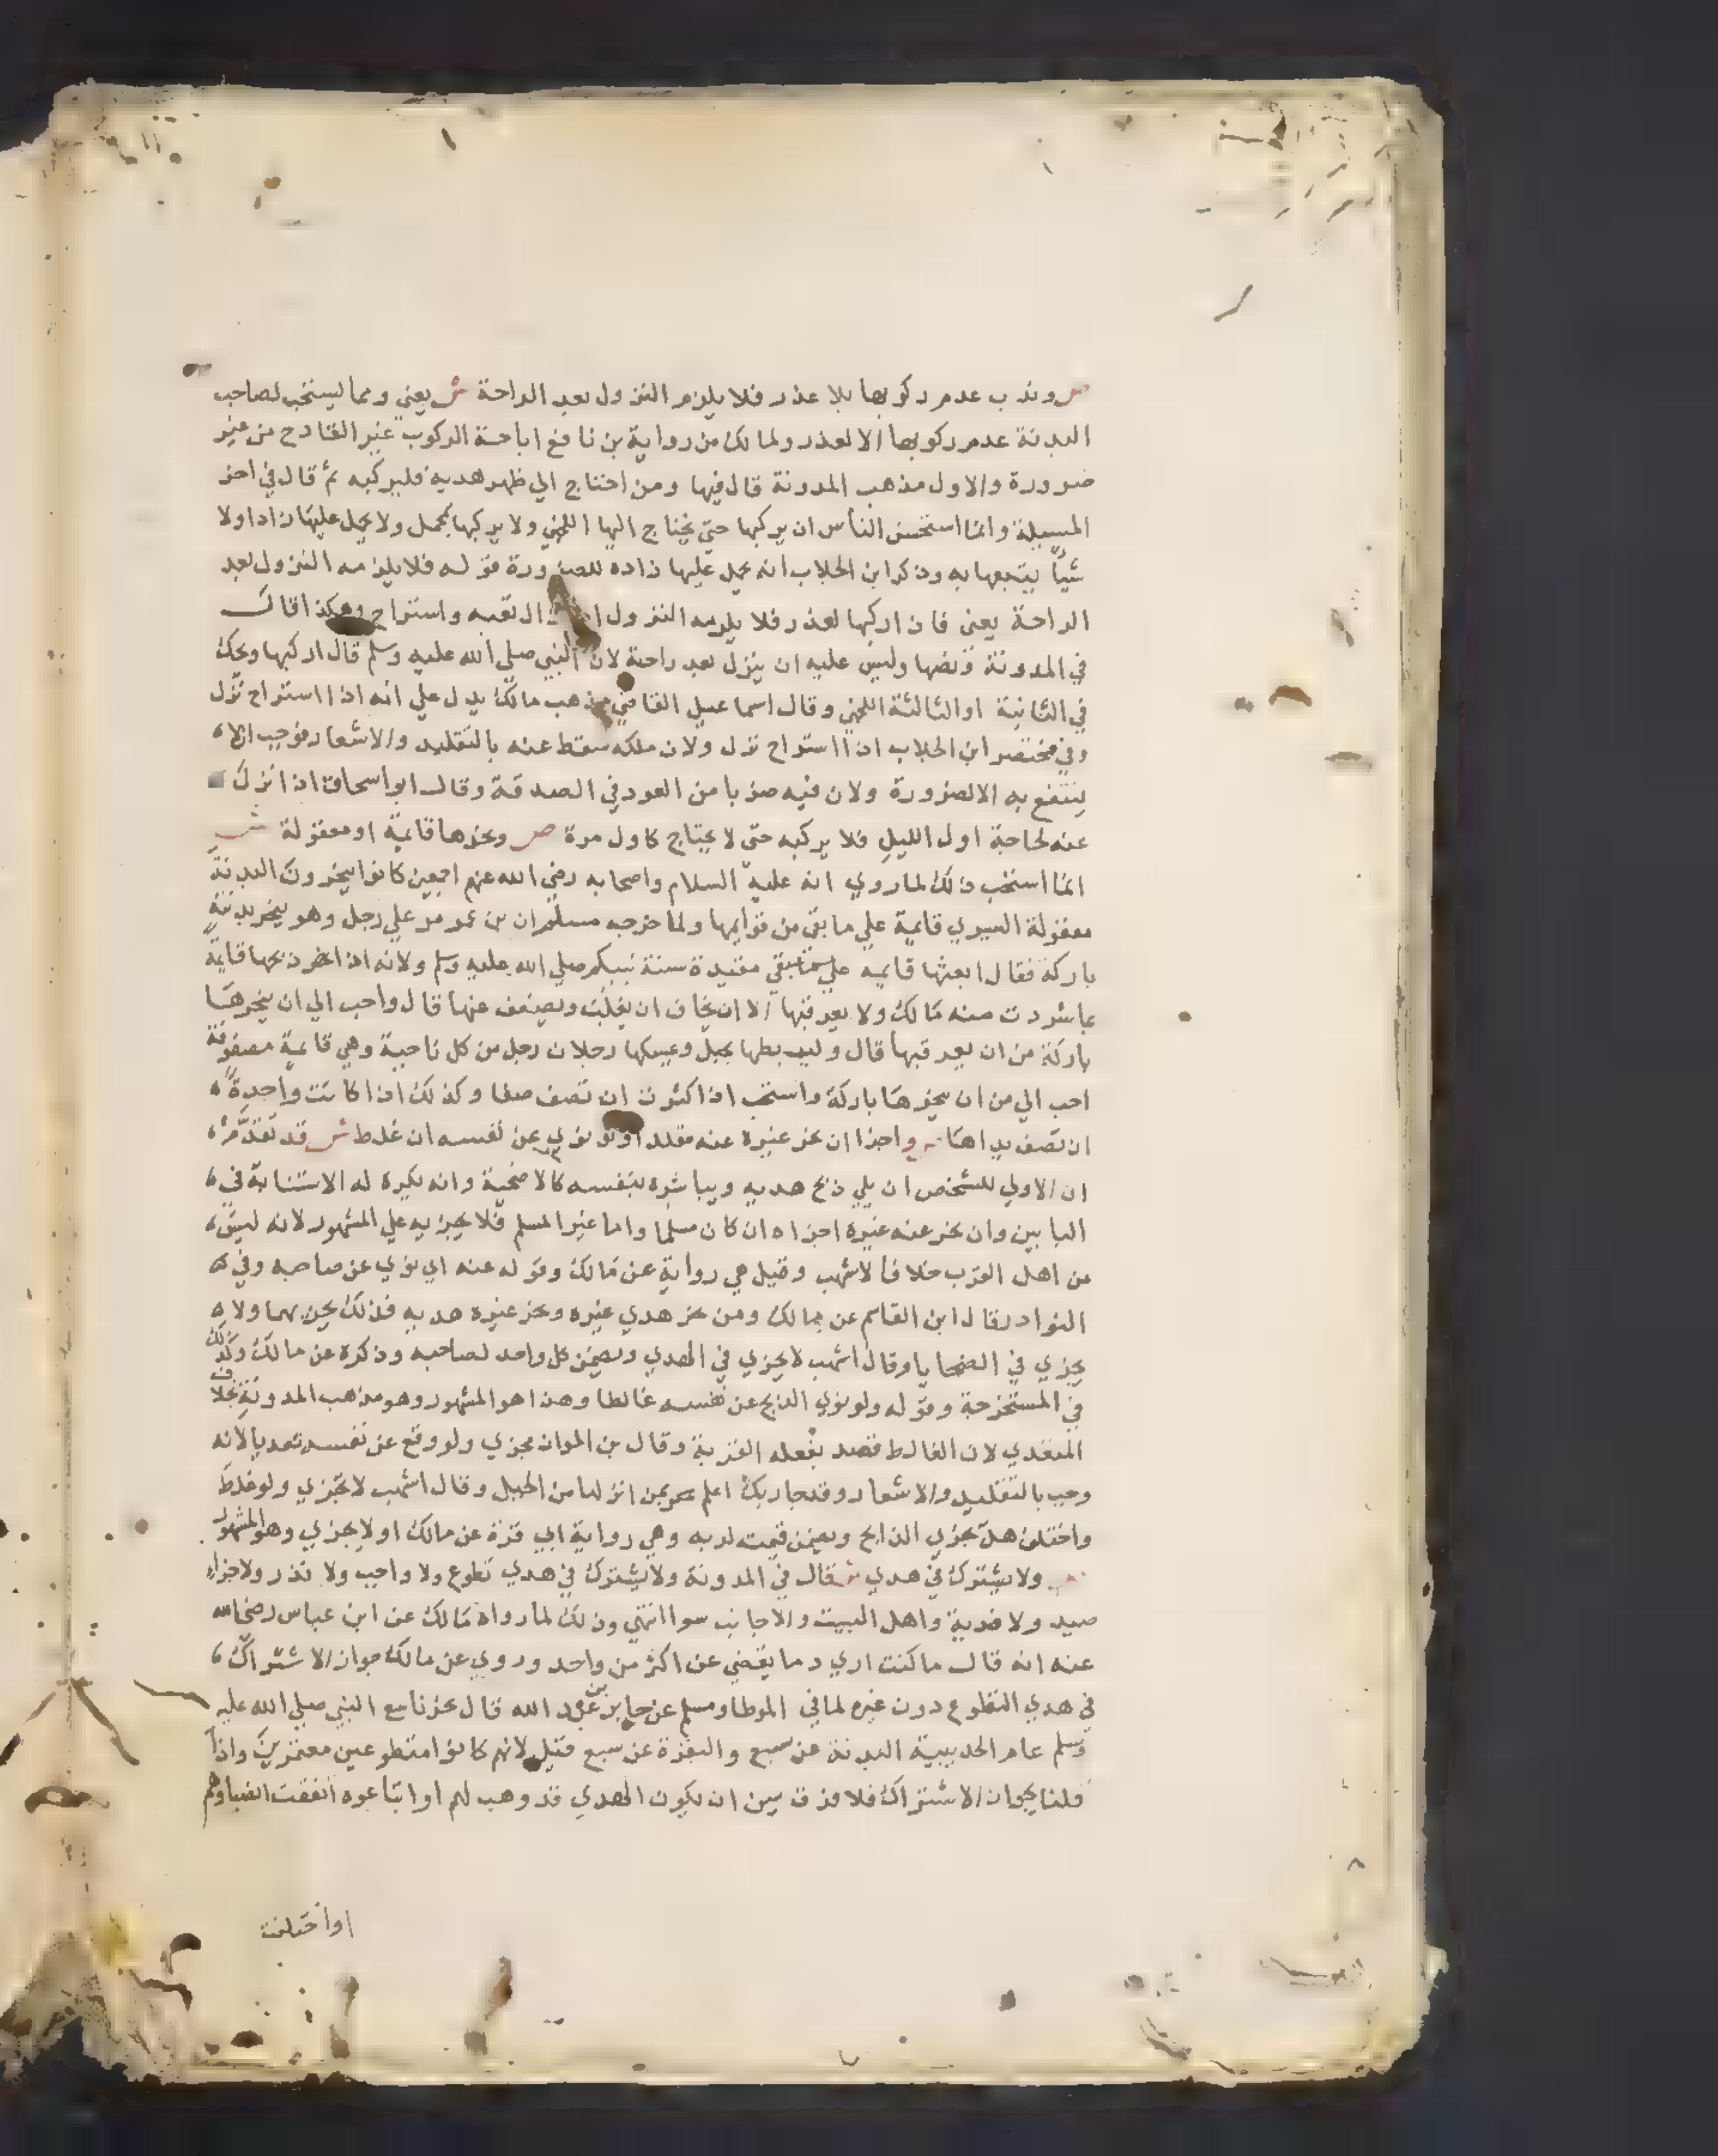 ص وندب عدم ركوبها بلا عذر فلا يلزم النزول بعد الراحة ش يعني ومما يستحب لصاحب
البدنة عدم ركوبها الا لعذر ولمالك من رواية بن نافع اباحة الركوب غير الفادح من غير
ضرورة والاول مذهب المدونة قال فيها ومن احتاج الي ظهر هديه فليركبه ثم قال في اخر
المسيلة وانما استحسن الناس ان يركبها حتي يحتاج اليها اللخمي ولا يركبها بمحمل ولا يحمل عليها زادا ولا
شيأ يتبعها به وذكر ابن الجلاب انه يحمل عليها زاده للضرورة قوله فلا يلزمه النزول بعد
الراحة يعني فان اركبها لعذر فلا يلزمه النزول اذا زال تعبه واستراح وهكذا قال
في المدونة ونصها وليس عليه ان ينزل بعد راحته لان النبي صلي الله عليه وسلم قال اركبها ويحك
في الثانية او الثالثة اللخمي وقال اسماعيل القاضي مذهب مالك يدل علي انه اذا استراح نزل
وفي مختصر ابن الجلاب اذا استراح نزل ولان ملكه سقط عنه بالتقليد والاشعار فوجب الا
ينتفع به الا لضرورة ولان فيه ضربا من العود في الصدقة وقال ابو اسحاق اذا نزل
عنه لحاجة اول الليل فلا يركبه حتي لا يحتاج كاول مرة ص ونحرها قايمة او معقولة ش
انما استحب ذلك لما روي انه عليه السلام واصحابه رضي الله عنهم اجمعين كانوا ينحرون البدنة
معقولة اليسري قايمة علي ما بقي من قوايمها ولما خرجه مسلم ان بن عمر مر علي رجل وهو ينحر بدنته
باركة فقال ابعثها قايمه مقيدة سنة نبيكم صلي الله عليه وسلم ولانه اذا نحرها قايمة
بما شردت منه مالك ولا يعرقبها الا ان يخاف ان يغلب ويضعف عنها قال واحب الي ان ينحرها
باركة من ان يعرقبها قال وليربطها بحبل ويمسكها رجلان رجل من كل ناحية وهي قايمة مصفوفة
احب الي من ان ينحرها باركة واستحب اذا كثرت ان تصف صفا وكذلك اذا كانت واحدة
ان تصف يداها ص واجزا ان نحر غيره عنه مقلدا ولو نوي عن نفسه ان غلط ش قد تقدم
ان الاولي للشخص ان يلي ذبح هديه ويباشره بنفسه كالاضحية وانه يكره له الاستنابة في
البابين وان نحر عنه غيره اجزاه ان كان مسلما واما غير المسلم فلا يجزيه علي المشهور لانه ليس
من اهل القرب خلافا لاشهب وقيل هي رواية عن مالك وقوله عنه اي نوي عن صاحبه وفي
النوادر قال ابن القاسم عن مالك ومن نحر هدي غيره ونحر غيره هديه فذلك يجزيهما ولا
يجزي في الضحايا وقال اشهب لا يجزي في الهدي ويضمن كل واحد لصاحبه وذكره عن مالك وكذلك
في المستخرجة وقوله ولو نوي الذبح عن نفسه غالطا وهذا هو المشهور وهو مذهب المدونة بخلاف
المتعدي لان الغالط قصد بفعله القربة وقال بن المواز مجزي ولو وقع عن نفسه تعديا لانه
وجب بالتقليد والاشعار وقد جا ربك اعلم بمن انزلها من الجبل وقال اشهب لا تجزي ولو غلط
واختلف هل تجزي الذابح ويضمن قيمته لربه وهي رواية ابي قرة عن مالك او لا يجزي وهو المشهور
ص ولا يشترك في هدي ش قال في المدونة ولا يشترك في هدي تطوع ولا واجب ولا نذر ولا جزاء
صيد ولا فدية واهل البيت والاجانب سوا انتهي وذلك لما رواه مالك عن ابن عباس رضي الله
عنه انه قال ما كنت اري دما يقضي عن اكثر من واحد وروي عن مالك جواز الاشتراك
في هدي التطوع دون غيره لما في الموطا ومسلم عن جابر بن عبد الله قال نحرنا مع النبي صلي الله عليه
وسلم عام الحديبية البدنة عن سبع والبقرة عن سبع قيل لانهم كانوا متطوعين معتمرين واذا
قلنا بجواز الاشتراك فلا فرق بين ان يكون الهدي قد وهب لهم او ابتاعوه اتفقت انصباوهم
او اختلفت